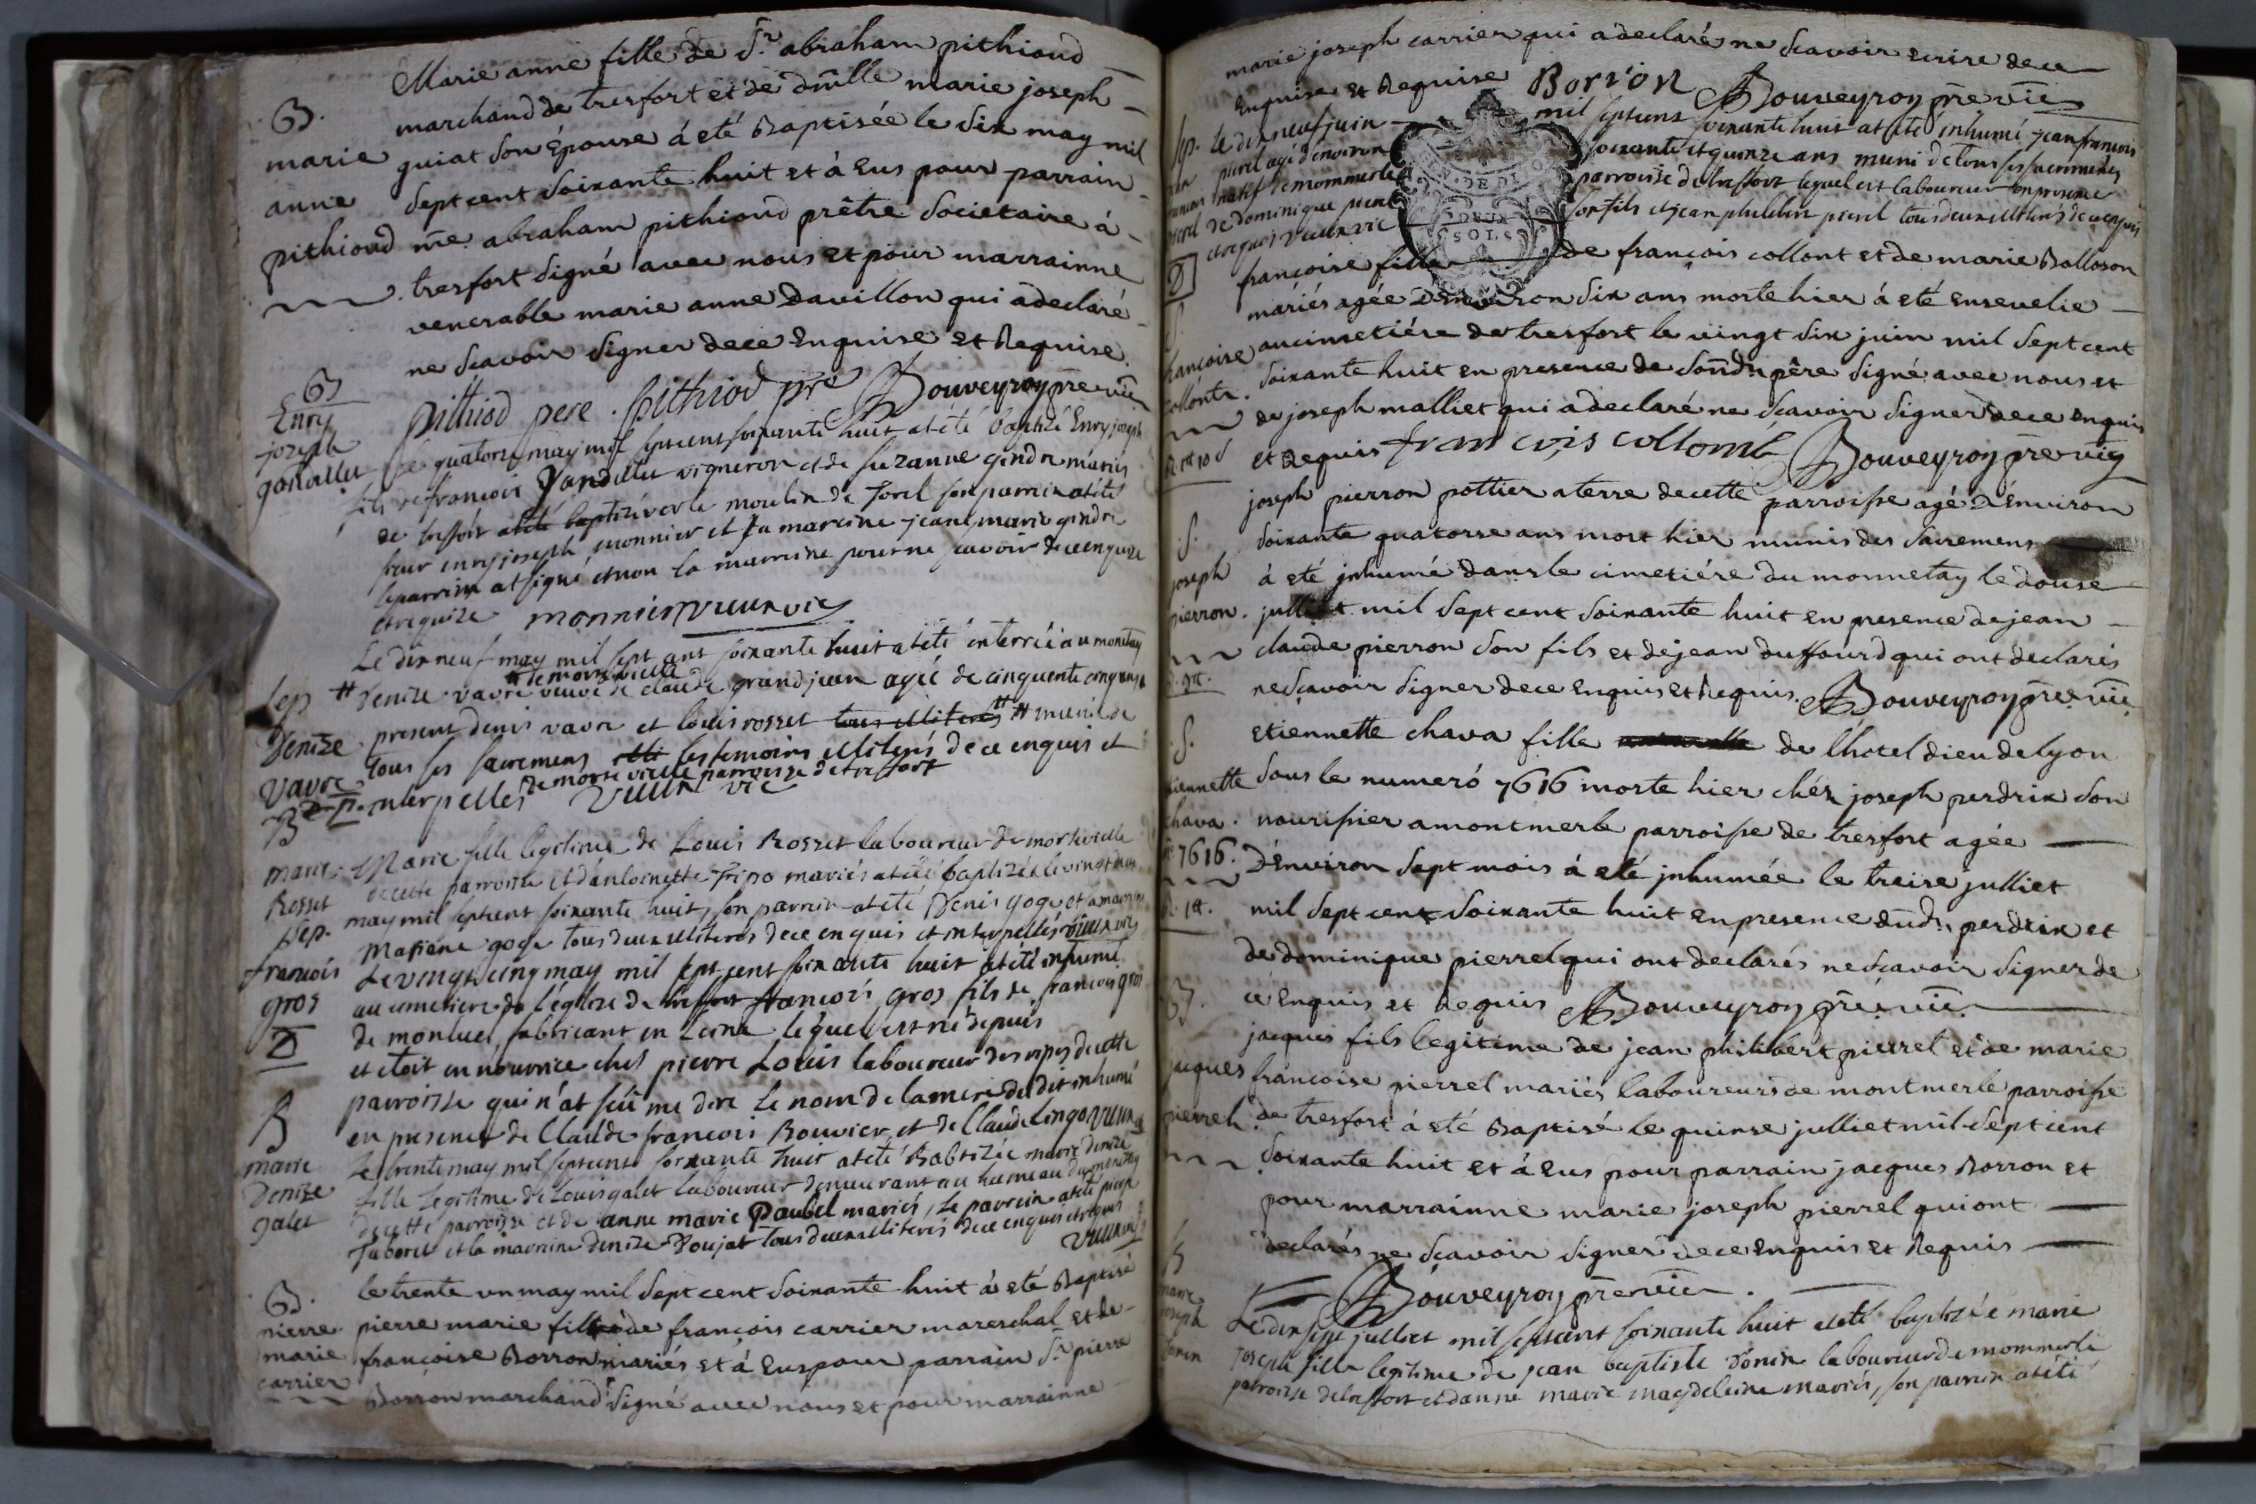 Marie anne fille de Sr abraham pithioud
B. marchand de tresfort et de dmlle marie joseph
marie guiat son épouse á eté Baptisée le six may mil
anne sept cent soixante huit et à eus pour parrain
pithioud me abraham pithioud prêtre societaire á
tresfort signé avec nous et pour marrainne
venerable marie anne Davillon qui a declaré
ne scavoir signer de ce enquise et Requise
pithiod pere . pithiod pre Bouveyron pre vic
B
Enry
joseph
gandillet
Le quatorze may mil sept cent soixante huit at été baptizé Enry joseph
fils de francois Gandillet vigneron et de suzanne gindre mariés
de tresfort at été baptizé vers le moulin de forel son parrin at été
sieur enry joseph monnier et sa marrine jeane marie gindre
le parrin at signé et non la marrine pour ne scavoir de ce enquize
et requize monnier vuuu vic
Le dix neuf may mil sept cent soixante huit at été enterrée au monetay
de morte vielle
Sep # Denize vavre veuve de claude grandjean agée de cinquente cinq ans
Denize present denis vavre et loüis rosset tous illiterés # munie de
Vavre tous ses sacremens les temoins illiterés de ce enquis et
interpellés de morte vielle parroisse de tresfort
B
marie Marie fille legitime de Louis Rosset laboureur de mortevielle
Rosset de cette parroisse et d'antoinette mariés at été baptizée le vingt
may mil sept cent soixante huit, son parrin at été Denis goge et sa marrine
Mariane goge tous deux illiterés de ce enquis et interpellés
sep.
francois Le vingt cinq may mil sept cent soixante huit at été inhumé
gros au cimetiere de l'eglize de tresfort francois gros fils de francois gros
de montluel, fabricant en Laine lequel est né depuis
et etoit en nourrice chés pierre Loüis laboureur des cette
parroisse qui n'at sçû me dire le nom de la mere du dit inhumé
en presence de Claude francois Bouvier et de Claude
B Le trente may mil sept cent soixante huit at été Babtizée marie denize
marie fille legitime de Louis galet laboureur demeurant au hameau du monetay
Denize de cette parroisse et de anne marie Paubel mariés, le parrin at été
galet et la marrine denize tous deux illiterés de ce enquis et requis
B. le trente un may mil sept cent soixante huit à eté Baptisé
pierre pierre marie fils de françois carrier mareschal et de
marie françoise Borron mariés et á eus pour parrain Sr pierre
carrier Borron marchand signé avec nous et pour marrainne
marie joseph carrier qui a declaré ne scavoir ecrire de ce
Enquise et Requise Borron Bouveyron pre vic
Sep. Le dix neuf juin mil sept cent soixante huit at été inhumé jean francois
pierrel agé d'environ soixante et quinze ans muni de tous ses sacremens
natif de mommerle parroisse de tresfort lequel est laboureur en presence
de dominique pierrel son fils et jean philibert pierrel tous deux illiterés de ce enquis
et requis
DEUX
SOLS
françoise fille de françois collont et de marie Balloson
mariés agée d'environ six ans morte hier á eté ensevelie
françoise au cimetiére de tresfort le vingt six juin mil sept cent
collont. soixante huit en presence de sond. pêre signé avec nous et
de joseph malliet qui a declaré ne scavoir signer de ce enquis
et Requis francois collomb Bouveyron pre vic
joseph pierron pottier a terre de cette parroisse agé d'environ
S. soixante quatorse ans mort hier munis des sacremens
joseph á eté jnhumé dans le cimetiére du monnetay le douse
pierron. julliet mil sept cent soixante huit en presence de jean
claude pierron son fils et de jean duffourd qui ont declarés
ne scavoir signer de ce enquis et Requis. Bouveyron pre vic
S. etiennette chava fille de l'hotel dieu de lyon
etiennette sous le numeró 7616 morte hier chés joseph perdrix son
chava. nourisier a montmerle parroisse de tresfort agée
7616. D'environ sept mois á eté jnhumée le treise julliet
mil sept cent soixante huit en presence dud. perdrix et
de dominique pierrel qui ont declarés ne scavoir signer de
B. cé Enquis et Requis Bouveyron pre vic.
jacques fils legitime de jean philibert pierrel et de marie
jacques françoise pierrel mariés laboureurs de montmerle parroisse
pierrel. de tresfort á eté Baptisé le quinse julliet mil sept cent
soixante huit et á eus pour parrain jacques Borron et
pour marrainne marie joseph pierrel qui ont
declarés ne scavoir signer de ce enquis et Requis
Bouveyron pre vic.
B
marie
joseph
Ponin
Le dix sept julliet mil sept cent soixante huit at été baptizée marie
joseph fille legitime de jean baptiste Ponin laboureur de mommerle
parroisse de tresfort et d'anne marie magdeleine mariés, son parrin at été